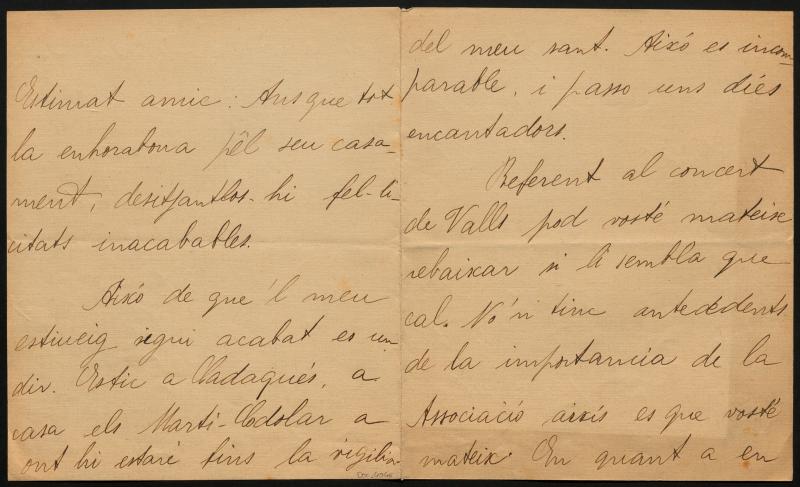 Estimat amic: Ans que tot
la enhorabona pêl seu casa-
ment, desitjantlos-hi fel-li-
citats inacabables.
Aixó de que 'l meu
estiueig sigui acabat es un
dir. Estic a Cadaqués, a
casa els Martí-Codolar a
ont hi estaré fins la vigilia
del meu sant. Aixó es incom-
parable, i passo uns díes
encantadors.
Referent al concert
de Valls pod vosté mateixe
rebaixar si li sembla que
cal. No 'n tinc antecedents
de la importancia de la
Associació aixís es que vosté
mateix. En quant a en